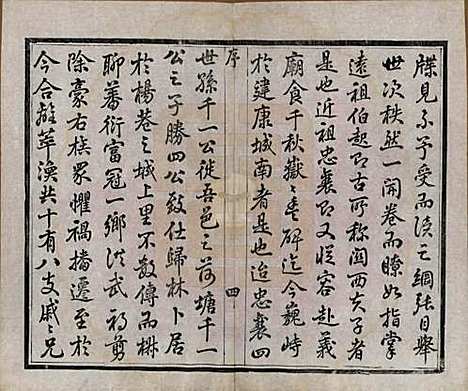 牒見示予受而讀之綱張目舉
世次秩然一開卷而瞭如指掌
遠祖伯起即古所称關西夫子者
是也近祖忠襄即又從容赴義
廟食千秋嶽嶽豊碑迄今巍峙
於建康城南者是也迨忠襄四
序
四
世孫千一公徙吾邑之荷塘千一
公之子勝四公致仕歸林卜居
於楊巷之城上里不數傳而椒
聊蕃衍富冠一鄉洪武初剪
除豪右族眾懼禍播遷至於
今合離萃渙共十有八支戚之兄